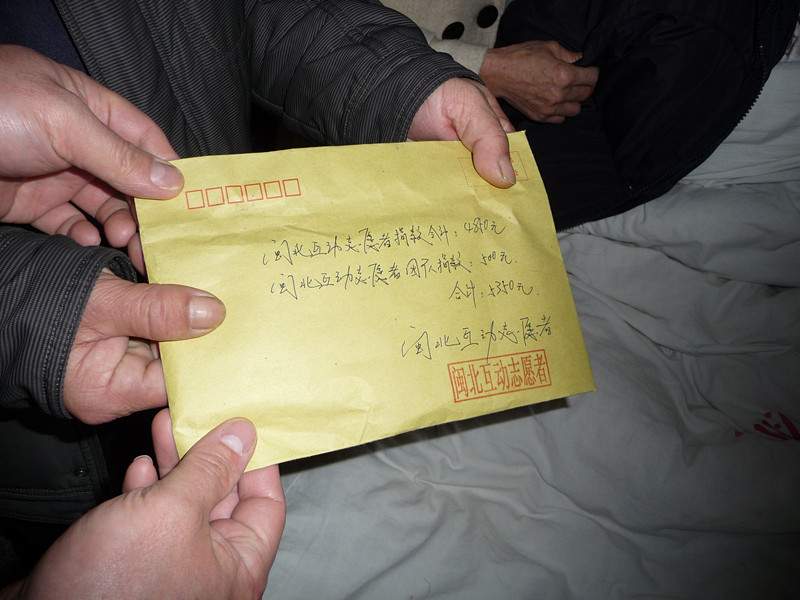 闽北互动志愿者捐款合计：4850元
闽北互动志愿者团队捐款：500元.
合计：5350元.
闽北互动志愿者
闽北互动志愿者